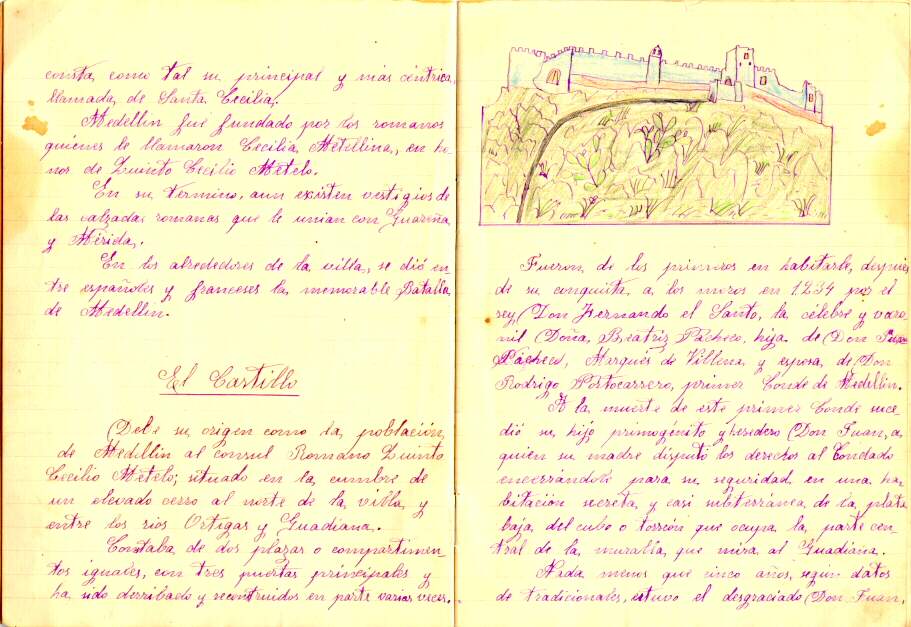 consta como tal su principal y más céntrica,
llamada de Santa Cecilia.
Medellin fue fundado por los romanos
quienes le llamaron Cecilia Metellina, en ho
nor de Quinto Cecilio Metelo.
En su termino, aun existen vestigios de
las calzadas romanas que le unian con Guareña
y Mérida.
En los alrededores de la villa, se dió en
tre españoles y franceses la memorable Batalla
de Medellin.
El Castillo
Debe su origen como la población
de Medellin al consul Romano Quinto
Cecilio Metelo; situado en la cumbre de
un elevado cerro al norte de la villa y
entre los rios Ortigas y Guadiana.
Constaba de dos plazas o compartimen
tos iguales, con tres puertas principales y
ha sido derribado y reconstruidos en parte varias veces.
Fueron de los primeros en habitarle, despues
de su conquista a los moros en 1234 por el
rey Don Fernando el Santo, la célebre y varo
nil Doña Beatriz Pacheco, hija de Don Juan
Pacheco, Marqués de Villena y esposa de Don
Rodrigo Portocarrero, primer Conde de Medellin.
A la muerte de este primer Conde suce
dió su hijo primogénito y heredero Don Juan, a
quien su madre disputó los derechos al Condado
encerrándole para su seguridad en una ha
bitación secreta y casi subterránea de la planta
baja del cubo o torreón que ocupa la parte cen
tral de la muralla que mira al Guadiana.
Nada menos que cinco años, según datos
de tradicionales, estuvo el desgraciado Don Juan,